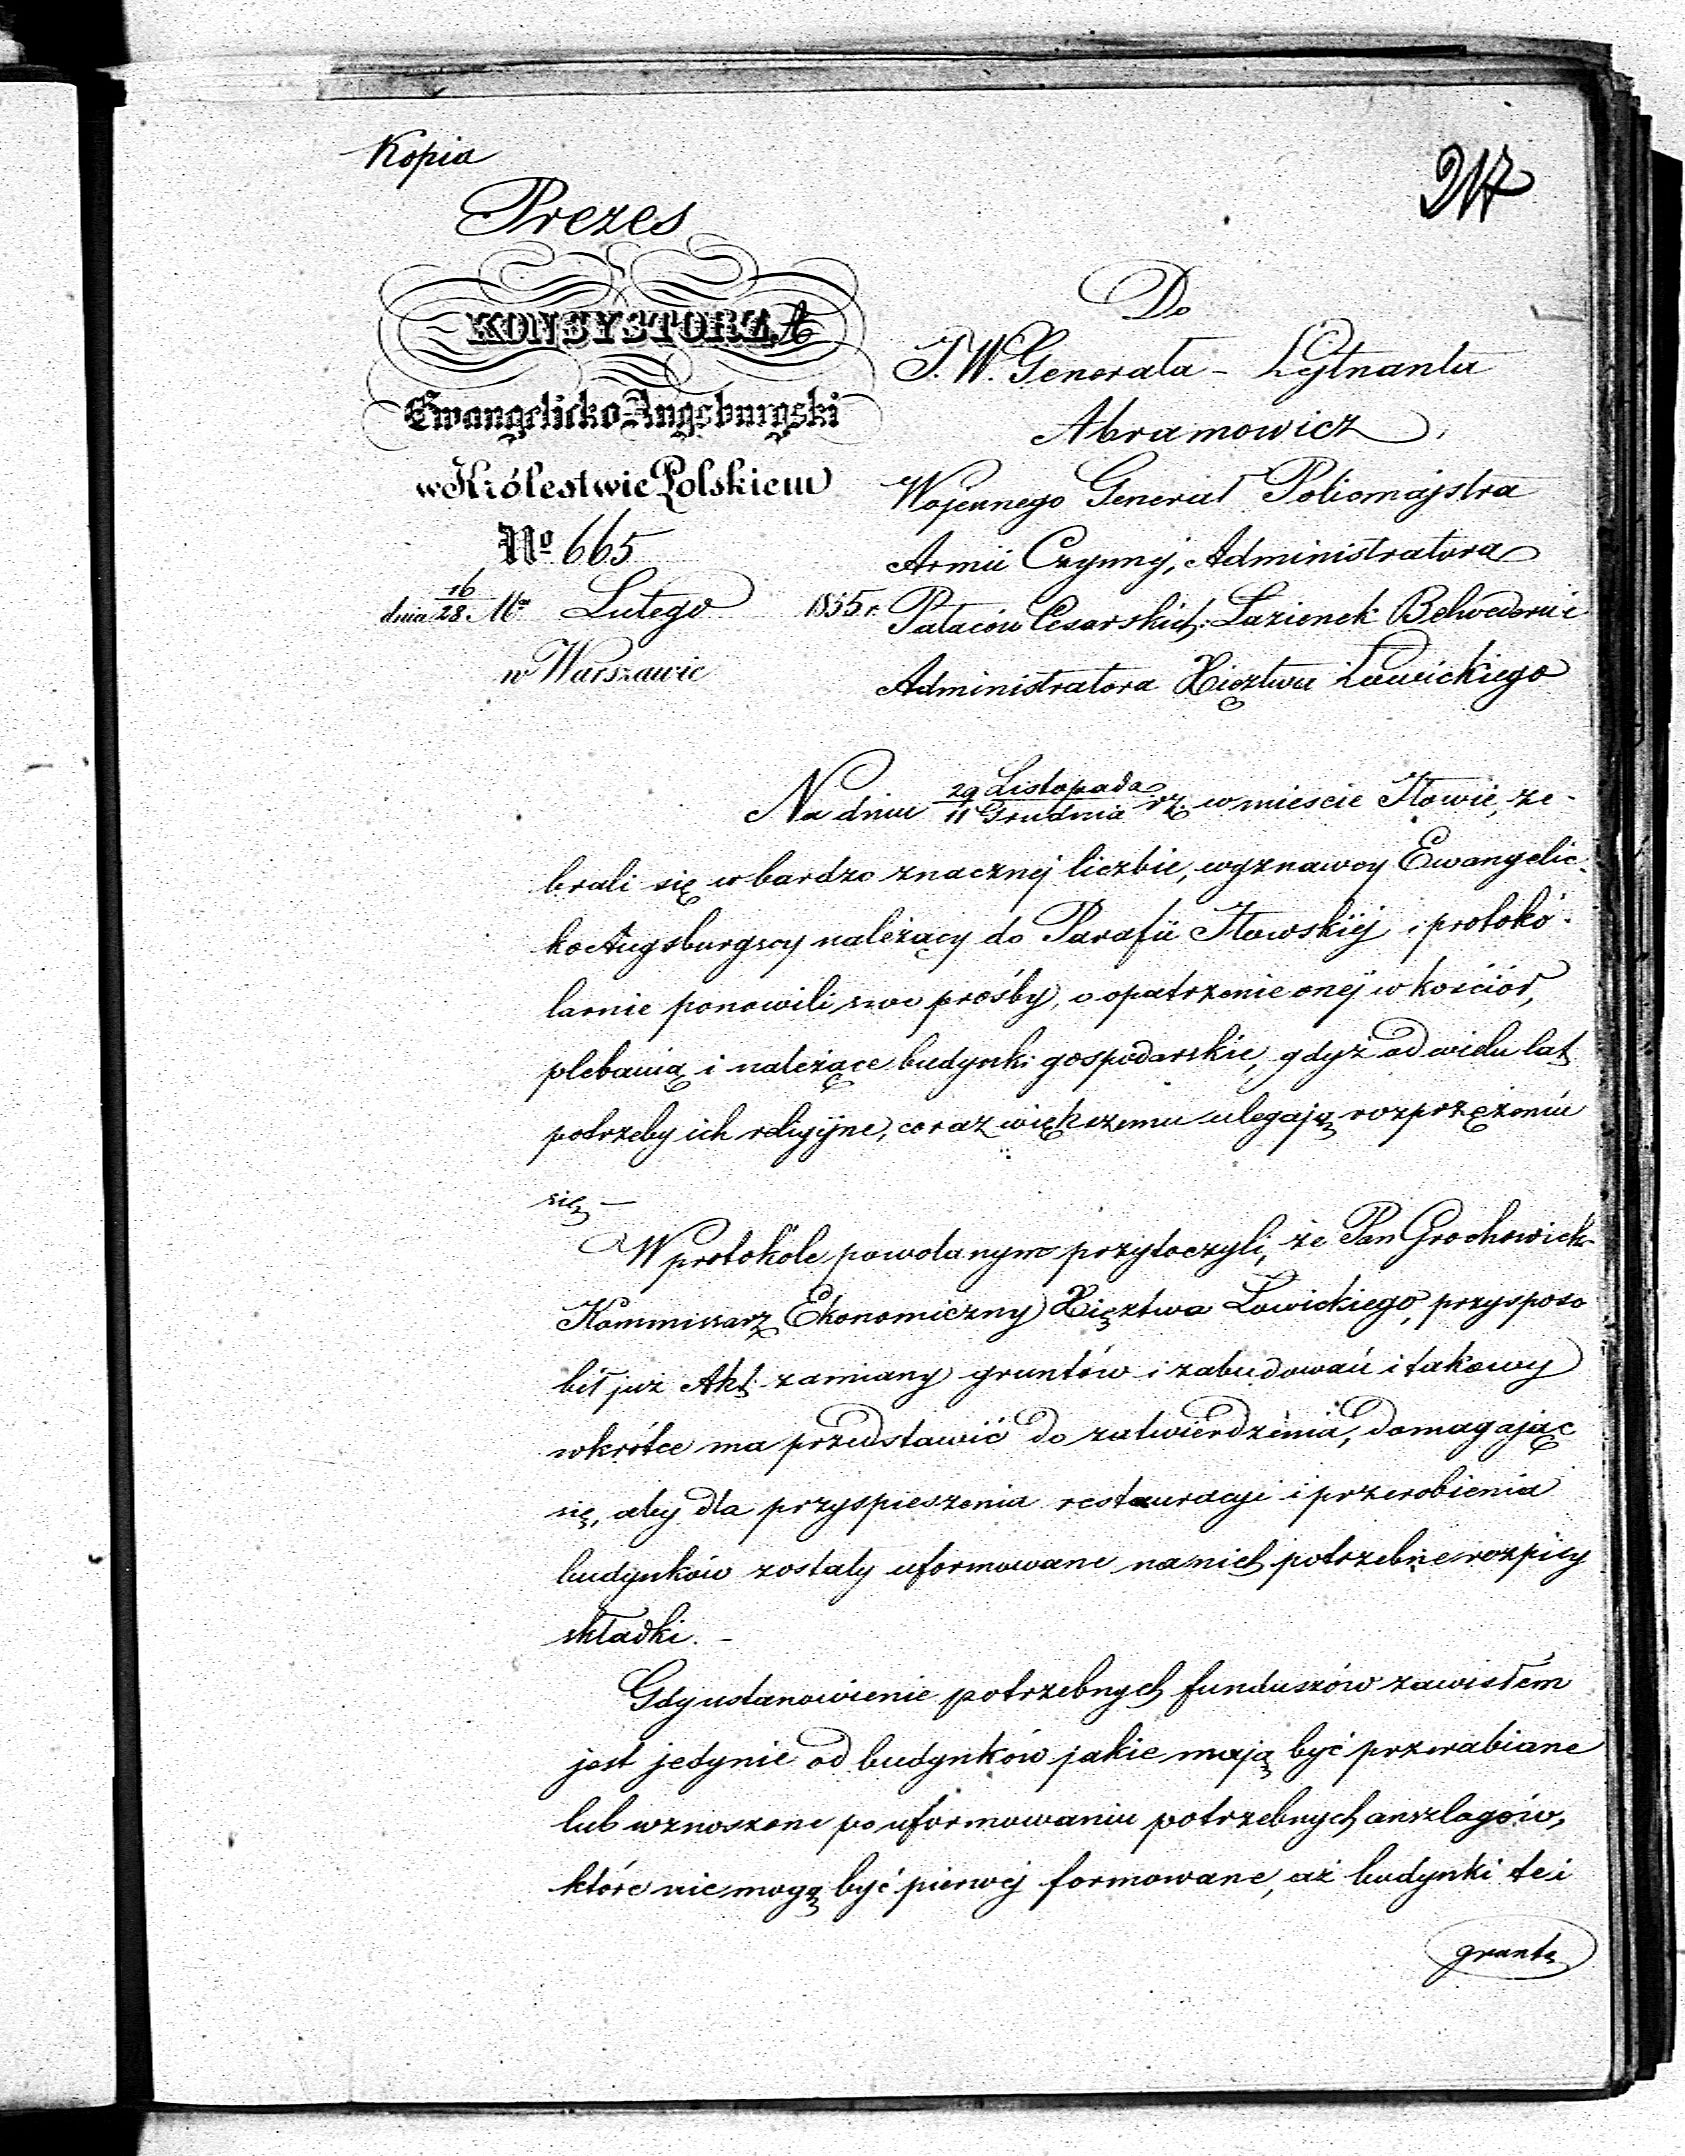 Kopia
217
Prezes
KONSYSTORZA
Ewangelicko Augsburgski
w Królestwie Polskiem
No 665
dnia 16/28 Mca Lutego 1855 r.
w Warszawie
Do
J. W. Generała - Lejtnanta
Abramowicz,
Wojennego Generał Policmajstra
Armii Czynnej, Administratora
Pałaców Cesarskich: Łazienek Belwederu i
Administratora Xięztwa Łowickiego
Na dniu 29 Listopada / 11 Grudnia r.z. w mieście Iłowie, ze-
brali się w bardzo znacznej liczbie, wyznawcy Ewangelic-
ko Augsburgscy należący do Parafii Iłowskiej i protokó-
larnie ponowili swe prośby, o opatrzenie onej w kościół,
plebanią i należące budynki gospodarskie, gdyż od wielu lat
potrzeby ich religijne, coraz większemu ulegają rozprzężeniu
się. —
W protokóle powołanym przytoczyli, że Pan Grochowicki
Kommissarz Ekonomiczny Xięztwa Łowickiego, przysposo
bił już Akt zamiany gruntów i zabudowań i takowy
wkrótce ma przedstawić do zatwierdzenia, domagając
się, aby dla przyspieszenia restauracyi i przerobienia
budynków zostały uformowane na nich potrzebne rozpisy
składki. -
Gdy ustanowienie potrzebnych funduszów zawisłém
jest jedynie od budynków jakie mają być przerabiane
lub wznoszone po uformowaniu potrzebnych anszlagów,
które nie mogą być pierwej formowane, aż budynki te i
grunta